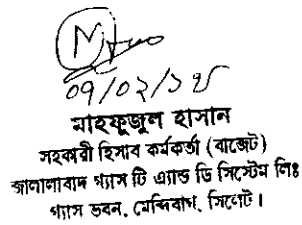 ০৭/০২/১৮
মাহফুজুল হাসান
সহকারী হিসাব কর্মকর্তা (বাজেট)
জালালাবাদ গ্যাস টি এ্যান্ড ডি সিস্টেম লিঃ
গ্যাস ভবন, মেন্দিবাগ, সিলেট।